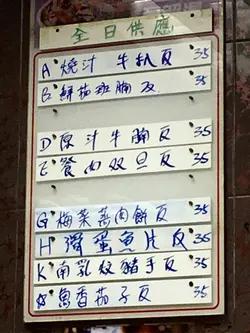 全日供應
A 燒汁牛扒反 35
B 鮮茄班腩反 35
D 原汁牛腩反 35
E 餐肉双旦反 35
G 梅菜蒸肉餅反 35
H 滑蛋魚片反 35
K 南乳炆豬手反 35
魚香茄子反 35